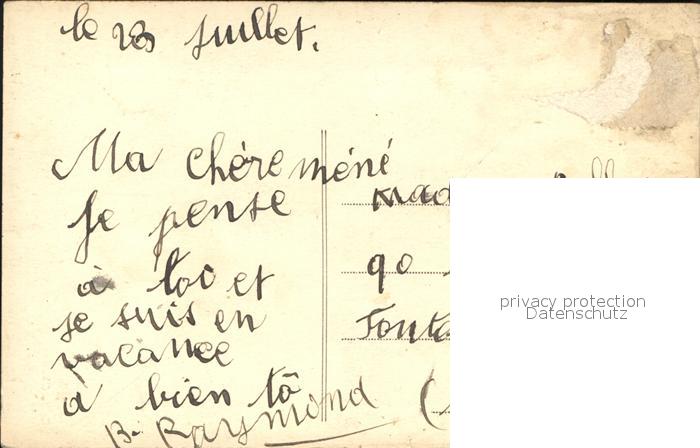 le 23 juillet.
Ma chère méné
Je pense
à toi et
je suis en
vacance
a bien tô
B. RAYMOND
90
privacy protection
Datenschutz